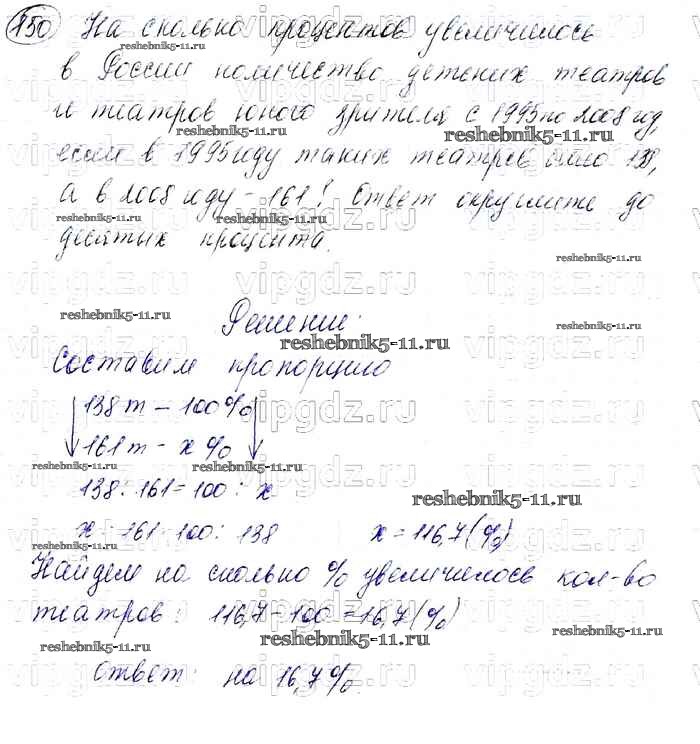 850 На сколько процентов увеличилось
в России количество детских театров
и театров юного зрителя с 1995 по 2008 год,
если в 1995 году таких театров было 138,
а в 2008 году - 161? Ответ округлите до
десятых процента.
Решение:
Составим пропорцию
138 т - 100%
161 т - х %
138 : 161 = 100 : х
х = 161 · 100 : 138     х = 116,7 (%)
Найдем на сколько % увеличилось кол-во
театров: 116,7 - 100 = 16,7 (%)
Ответ: на 16,7 %
reshebnik5-11.ru
vipgdz.ru